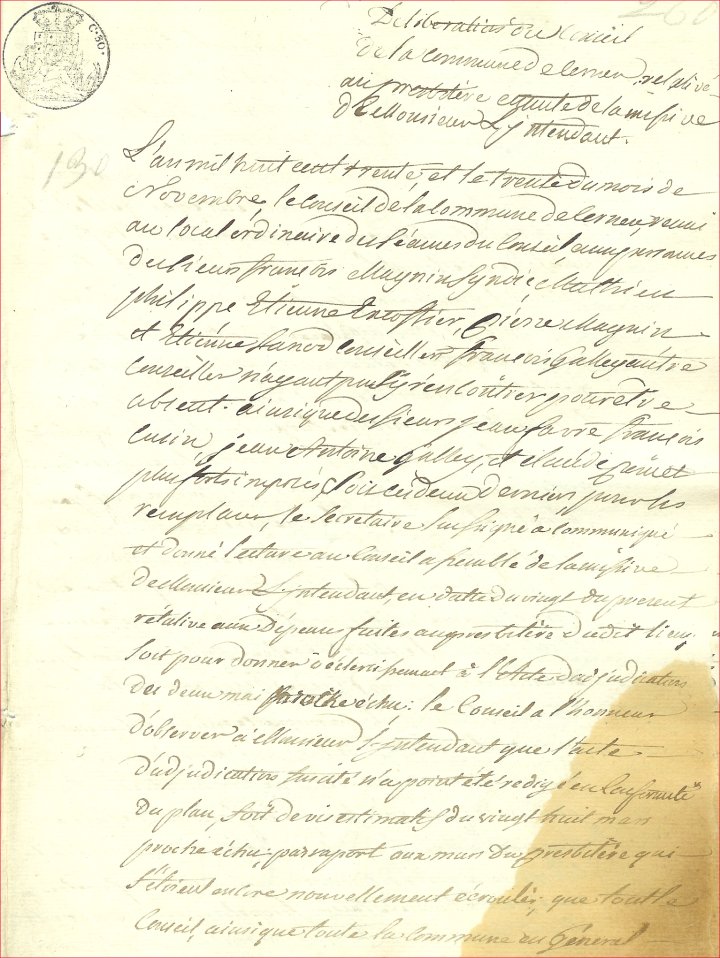 C. 30.
Deliberation du Conseil
de la Commune de Cernex, relative
au presbitère ensuite de la missive
de Monsieur L'intendant.
130
L'an mil huit cent trente, et le trente du mois de
Novembre, le Conseil de la Commune de Cernex, reuni
au local ordinaire des séances du Conseil, aux personnes
des sieurs françois Magnin Syndic, Mathieu
philippe Etienne, pierre Magnin
et Etienne Conseillers, françois Galley autre
Conseiller n'ayant pus s'y rencontrer pour être
absent. ainsi que des sieurs jean favre françois
Cusin, jean Antoine Galley, et
plus forts imposés, soit ces deux derniers pour les
remplacer, le Secretaire Soussigné a Communiqué
et donné lecture au Conseil assemblé de la missive
de Monsieur L'intendant, en datte du vingt du present
rélative aux Dépenses faites au presbitère dudit lieu,
soit pour donner éclercissement à l'Acte d'adjudication
des deux mai proche échu. le Conseil a l'honneur
d'observer à Monsieur L'intendant que l'acte
d'adjudication susité n'a point été redigé en Conformité
Du plan, soit devis estimatif du vingt huit mars
proche échu; par raport aux murs Du presbitère qui
s'étoient encore nouvellement écroulés; que tout le
Conseil, ainsi que toute la Commune en Général